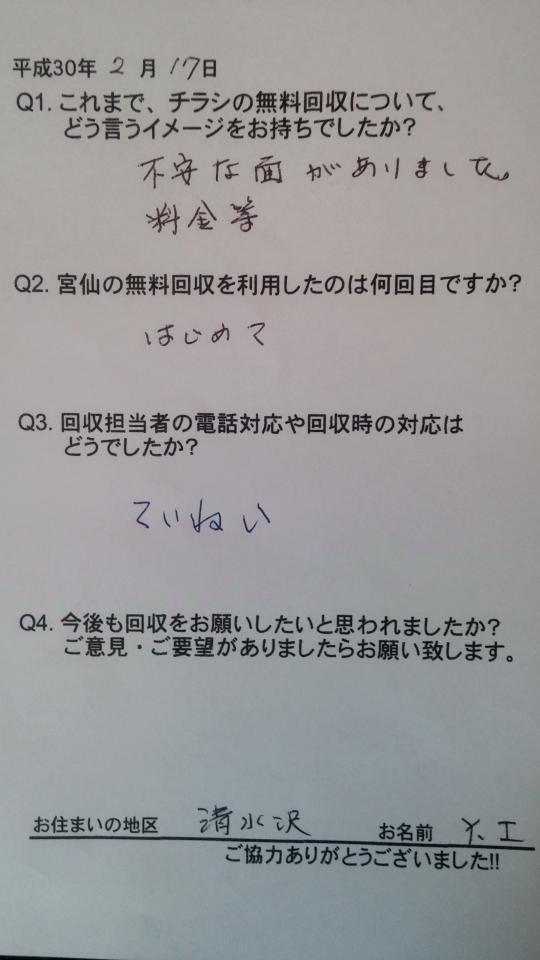 平成30年 2 月 17日
Q1. これまで、チラシの無料回収について、
どう言うイメージをお持ちでしたか?
不安な面がありました。
料金等
Q2. 宮仙の無料回収を利用したのは何回目ですか?
はじめて
Q3. 回収担当者の電話対応や回収時の対応は
どうでしたか?
ていねい
Q4. 今後も回収をお願いしたいと思われましたか?
ご意見・ご要望がありましたらお願い致します。
お住まいの地区 清水沢 お名前 Y. I
ご協力ありがとうございました!!